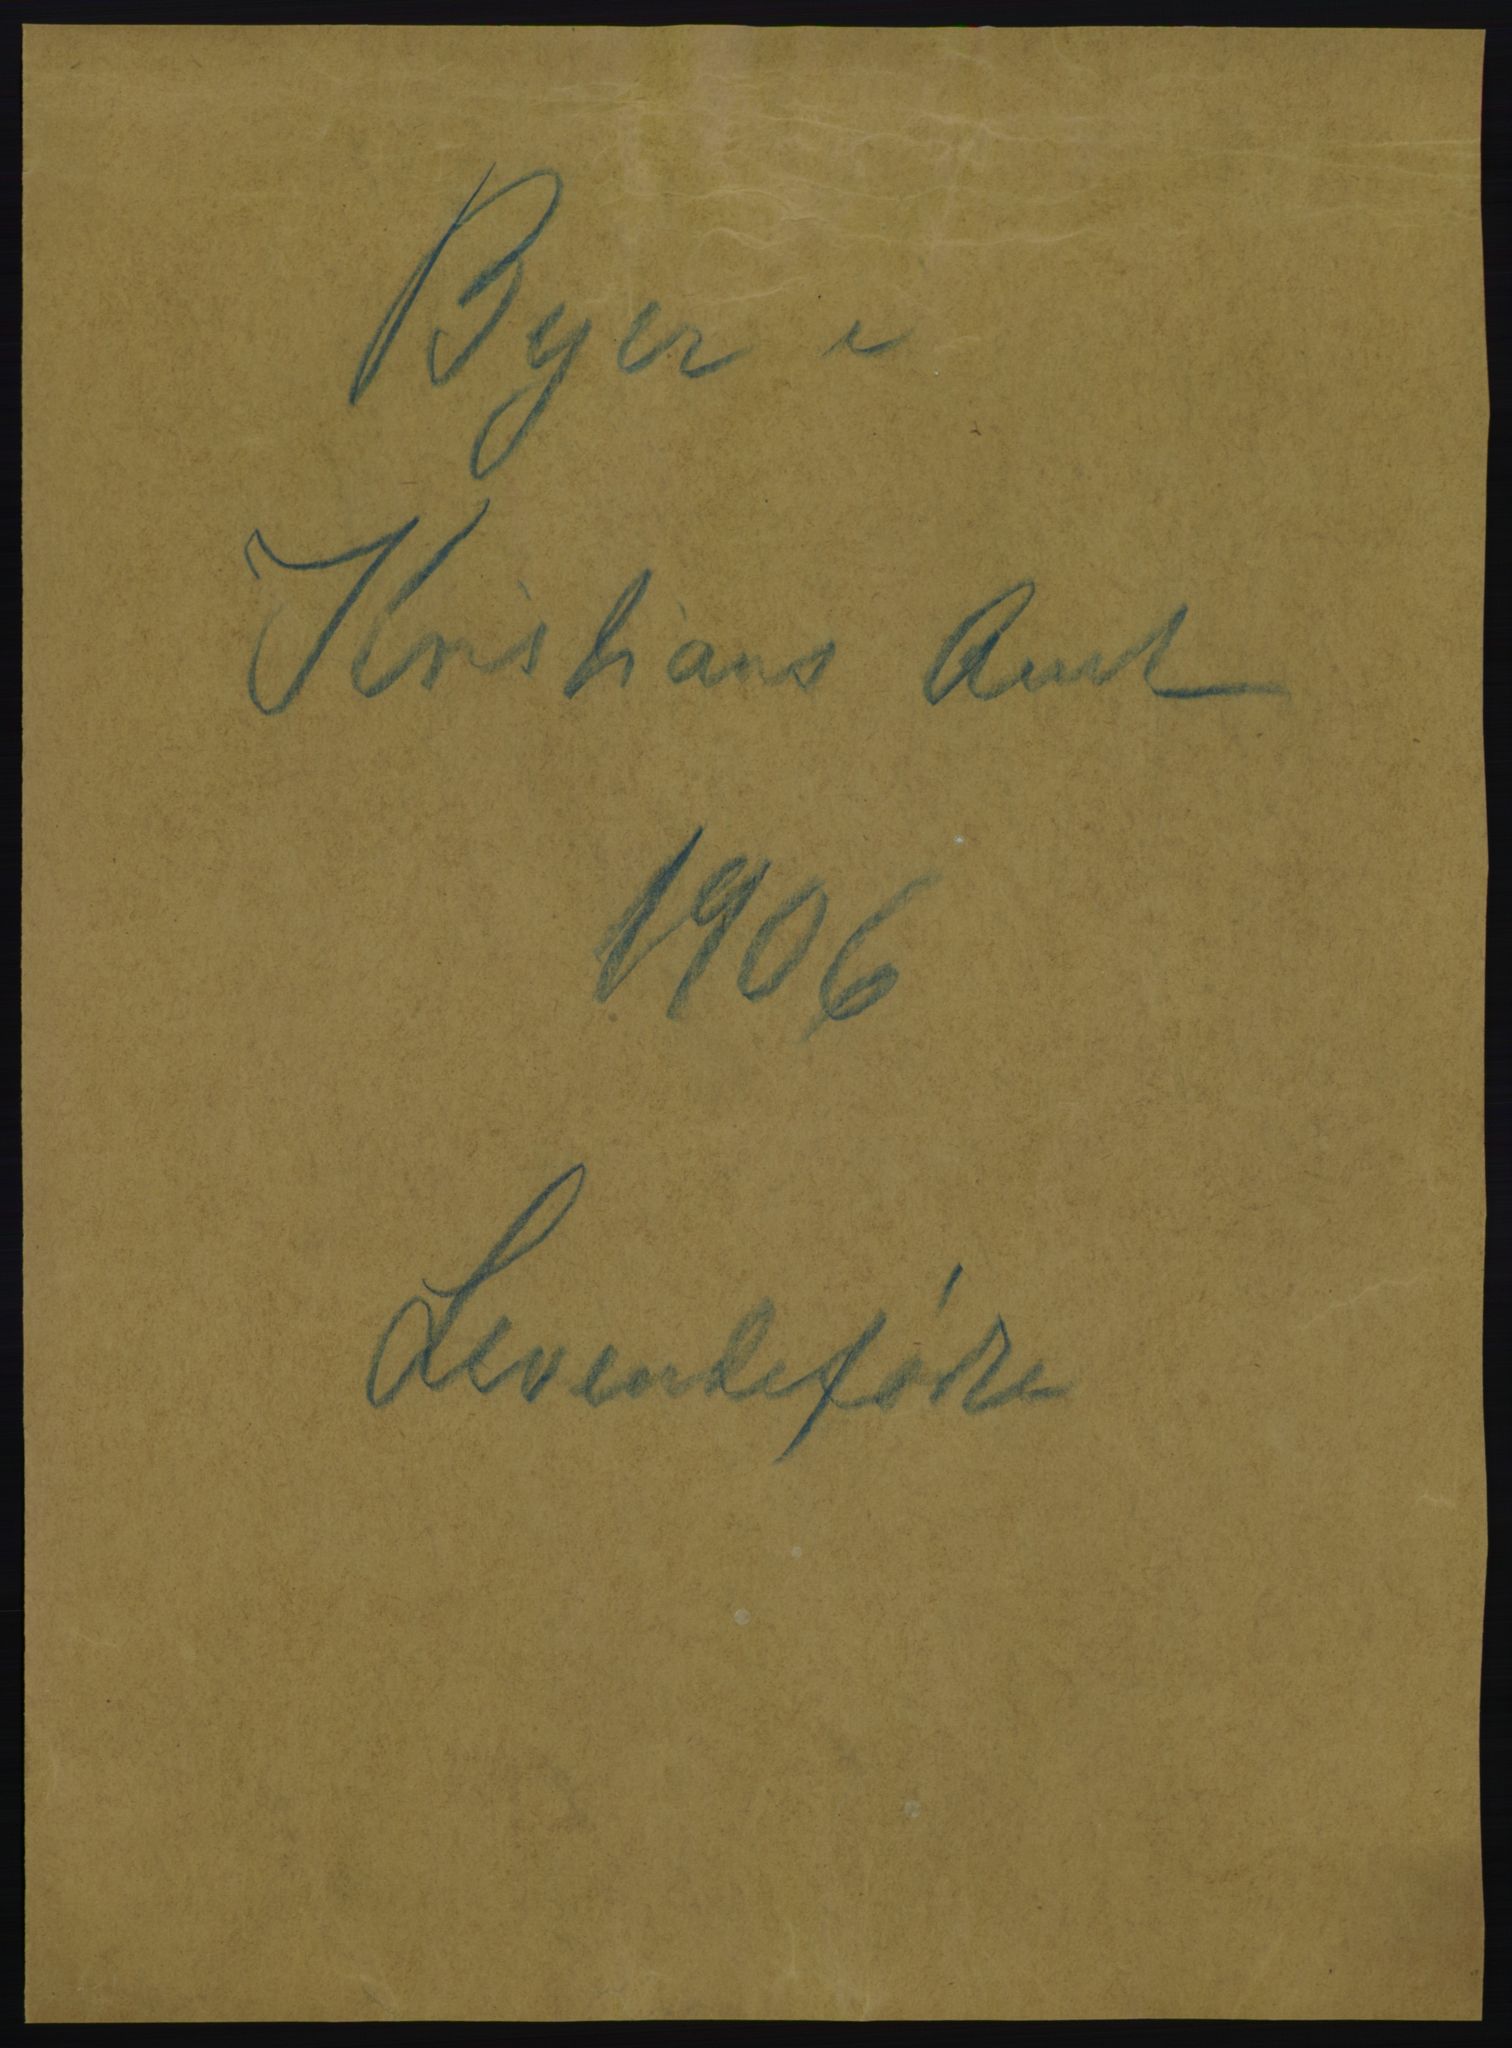 Byer i
Kristians Amt
1906
Levendefødte